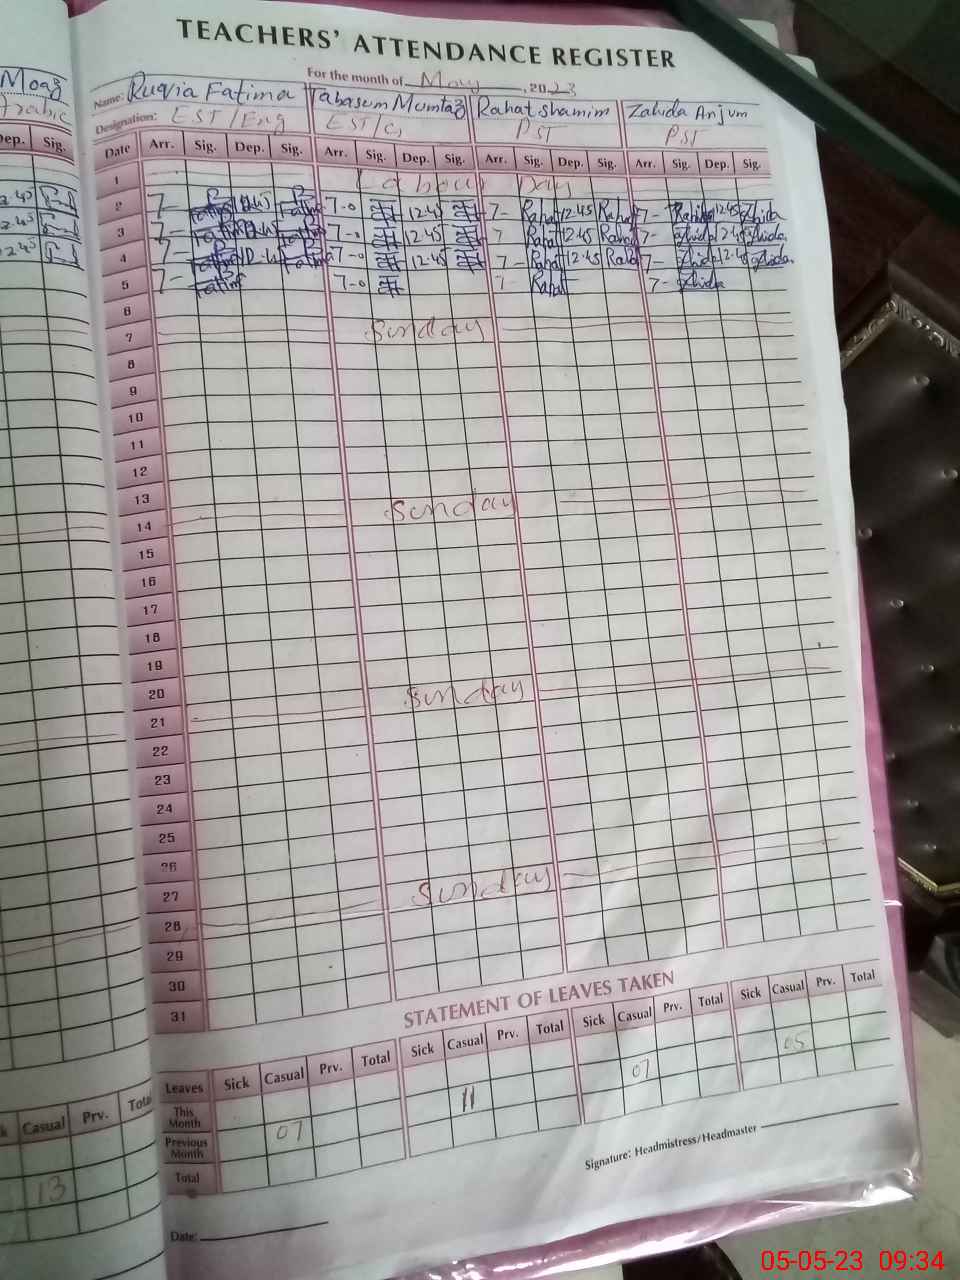 TEACHERS' ATTENDANCE REGISTER
For the month of May, 2023
Name: Ruqia Fatima Tabasum Mumtaz Rahat shamim Zahida Anjum
Designation: EST/Eng EST/G PST PST
Date Arr. Sig. Dep. Sig. Arr. Sig. Dep. Sig. Arr. Sig. Dep. Sig. Arr. Sig. Dep. Sig.
1 Labour Day
2 7- 7-0 12.45 7- Rahat 12.45 Rahat 7- 12.45 Zahida
3 7- 7-0 12.45 7 Rahat 12.45 Rahat 7- Zahida 12.45 Zahida
4 7- 7-0 12.45 7- Rahat 12.45 Rahat 7- Zahida 12.45 Zahida
5 7- Fatima 7-0 7- Rahat 7- Zahida
6
7 Sunday
8
9
10
11
12
13
14 Sunday
15
16
17
18
19
20
21 Sunday
22
23
24
25
26
27
28 Sunday
29
30
31
STATEMENT OF LEAVES TAKEN
Leaves Sick Casual Prv. Total Sick Casual Prv. Total Sick Casual Prv. Total Sick Casual Prv. Total
This Month
Previous Month 07 11 07 05
Total
Signature: Headmistress/Headmaster
Date:
Moaz
Arabic
Dep. Sig.
2.45
2.45
2.45
Casual Prv. Total
13
05-05-23 09:34